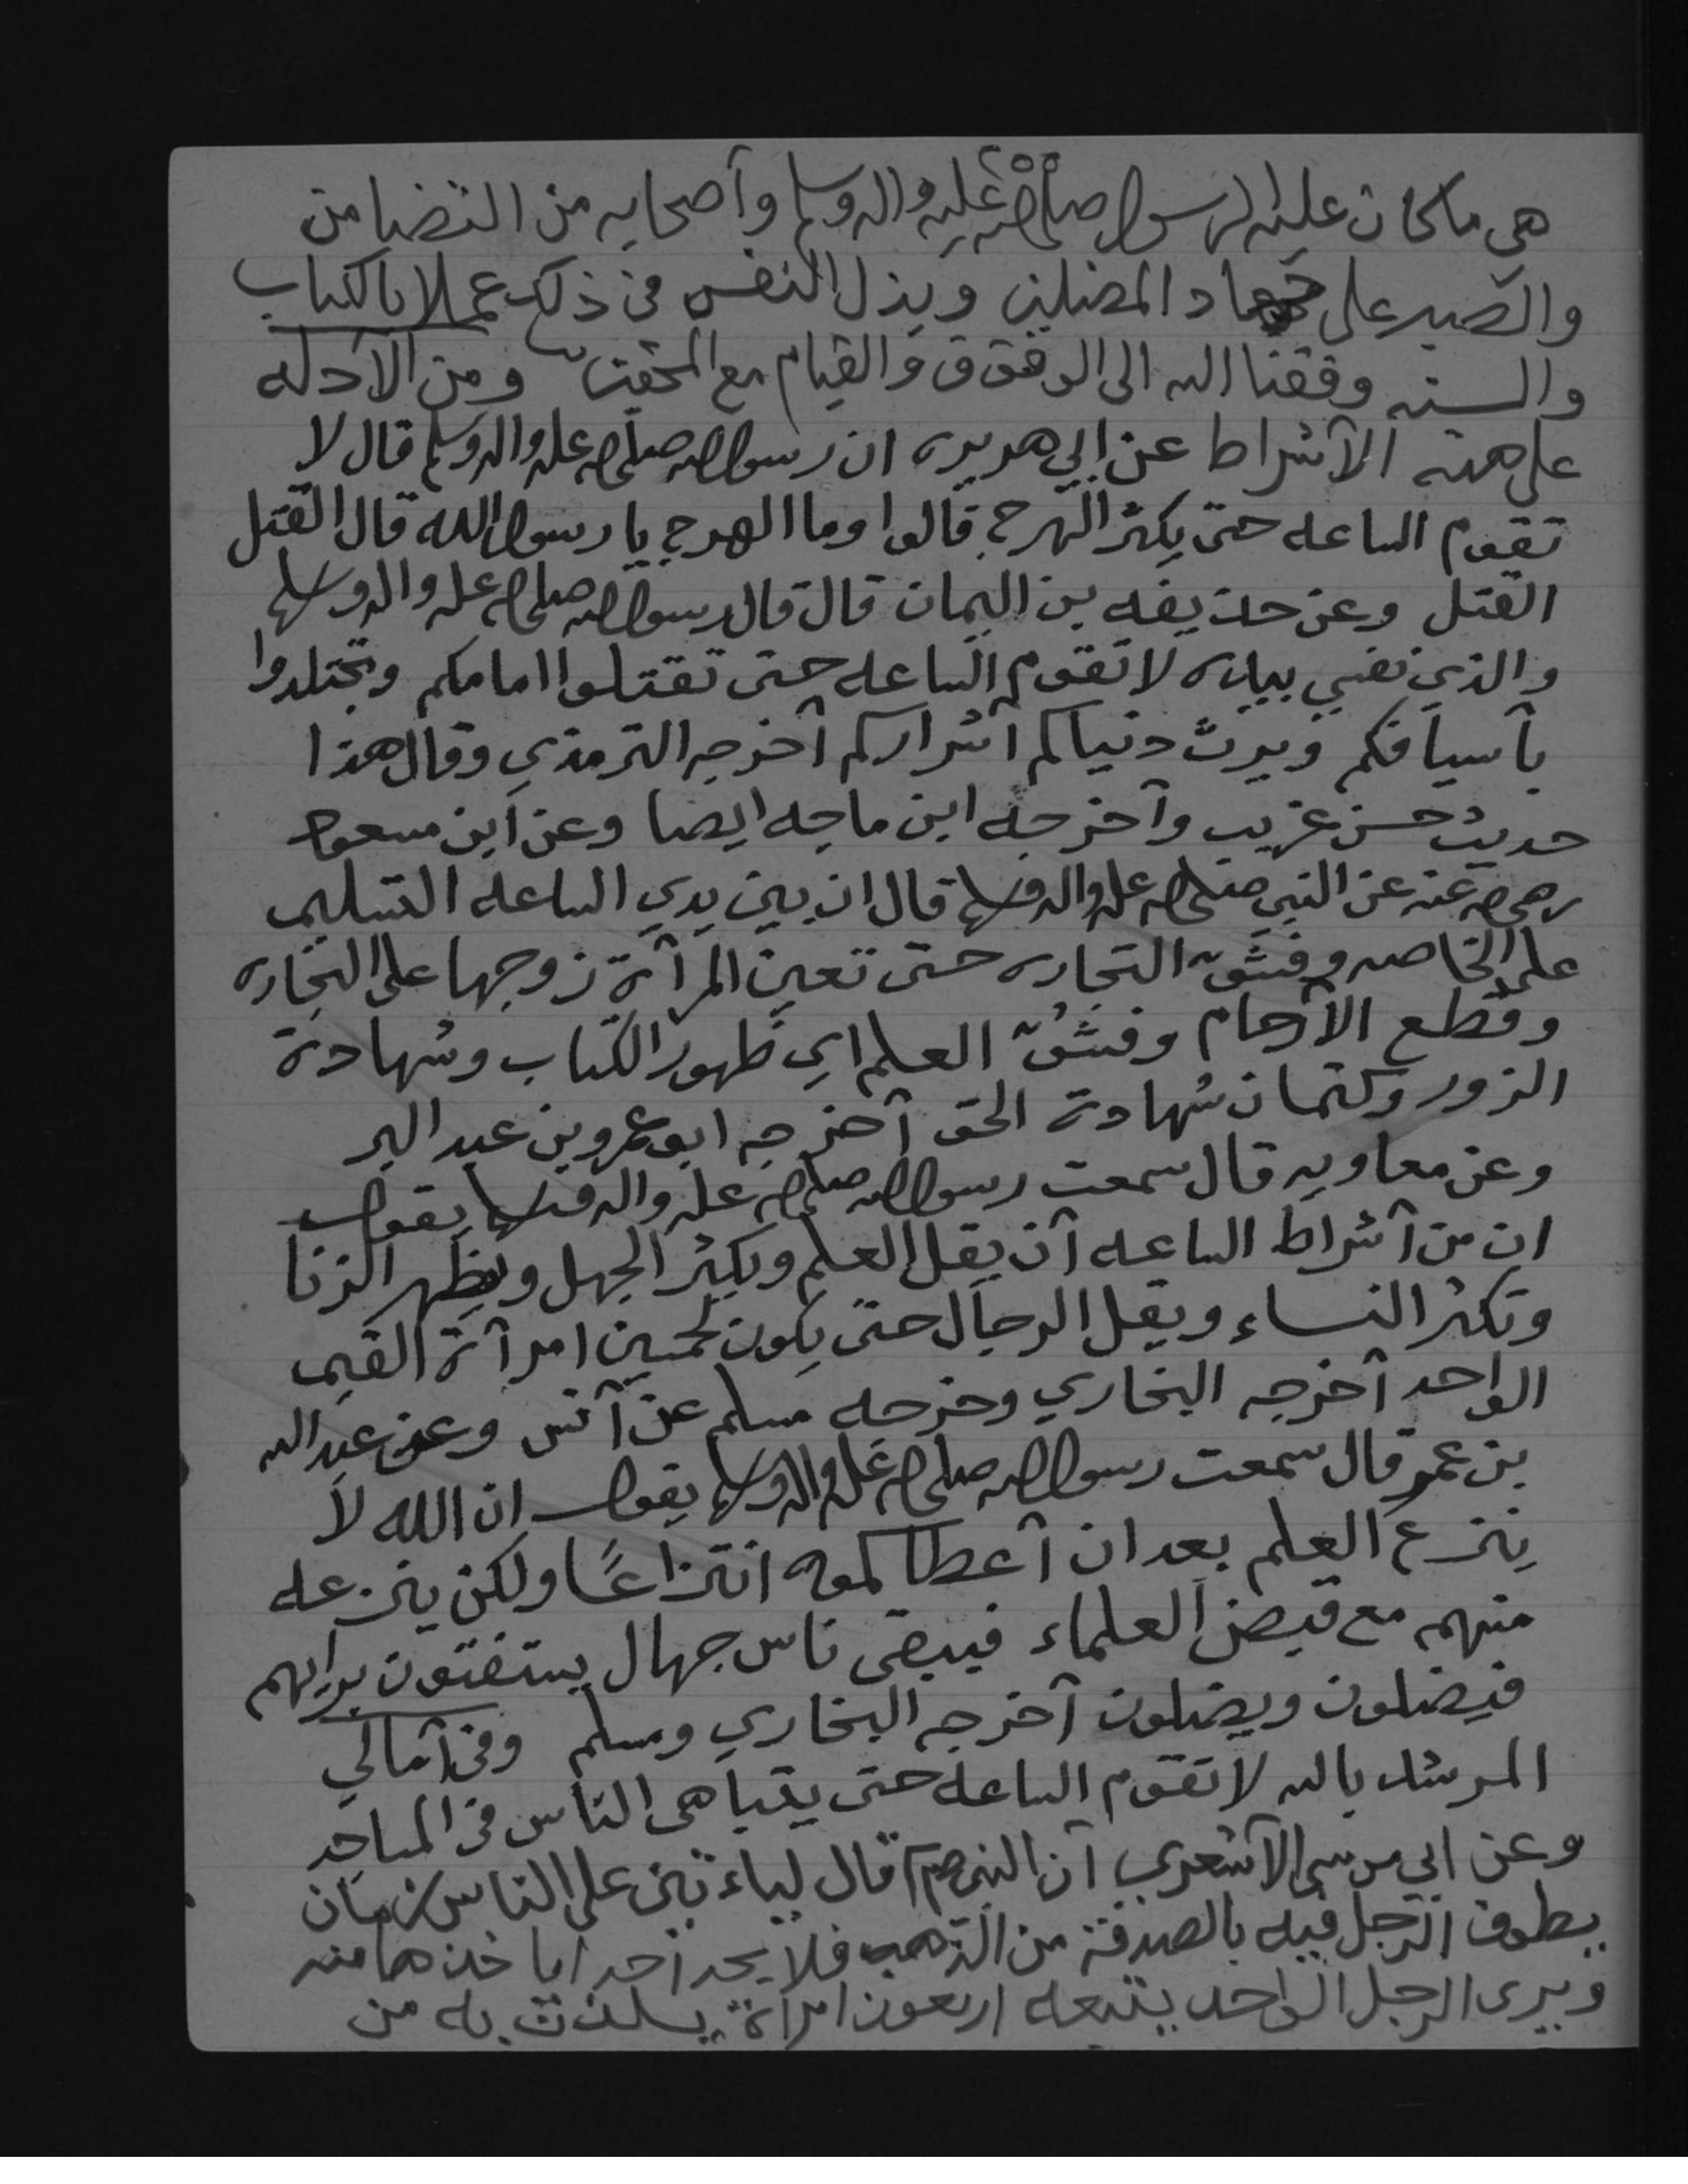 هي ما كان عليه الرسول صلى الله عليه واله وسلم وآصحابه من التضامن
والصبر على جهاد المضلين وبذل النفس في ذلك عملا بالكتاب
والسنه وفقنا الله الى الوقوف والقيام مع المحقين ومن الآدله
على هذه الآشراط عن ابي هريره ان رسول الله صلى الله عله واله وسلم قال لا
تقوم الساعه حتى يكثر الهرج قالوا وما الهرج يا رسول الله قال القتل
القتل وعن حذيفه بن اليمان قال قال رسول الله صلى الله عله واله وسلم
والذي نفسي بيده لا تقوم الساعه حتى تقتلوا امامكم وتجتلدوا
بآسيافكم ويرث دنياكم آشراركم آخرجه الترمذي وقال هذا
حديث حسن غريب وآخرجه ابن ماجه ايضا وعن ابن مسعود
رضي الله عنه عن النبي صلى الله عله واله وسلم قال ان بين يدي الساعه التسليم
على الخاصه وفشوّ التجاره حتى تعين المرآة زوجها على التجاره
وقطع الآرحام وفشُوّ العلم اي ظهور الكتاب وشهادة
الزور وكتمان شهادة الحق آخرجه ابو عمرو بن عبد البر
وعن معاويه قال سمعت رسول الله صلى الله عله واله وسلم يقول
ان من آشراط الساعه آن يقل العلم ويكثر الجهل ويظهر الزنا
وتكثر النساء ويقل الرجال حتى يكون لخمسين امرآة القيم
الواحد آخرجه البخاري وخرجه مسلم عن آنس وعن عبد الله
بن عمر قال سمعت رسول الله صلى الله عله واله وسلم يقول ان الله لا
ينزع العلم بعد ان آعطاكموه انتزاعًا ولكن ينزعه
منهم مع قبض العلماء فيبقى ناس جهال يستفتون برايهم
فيضلون ويضلون آخرجه البخاري ومسلم وفي آمالي
المرشد بالله لا تقوم الساعه حتى يتباهى الناس في المساجد
وعن ابي موسى الآشعري آن النبي صم قال لياء تين على الناس زمان
يطوف الرجل فيه بالصدقة من الذهب فلا يجد آحد ايا خذها منه
ويرى الرجل الواحد يتبعه اربعون امرآة يلذن به من